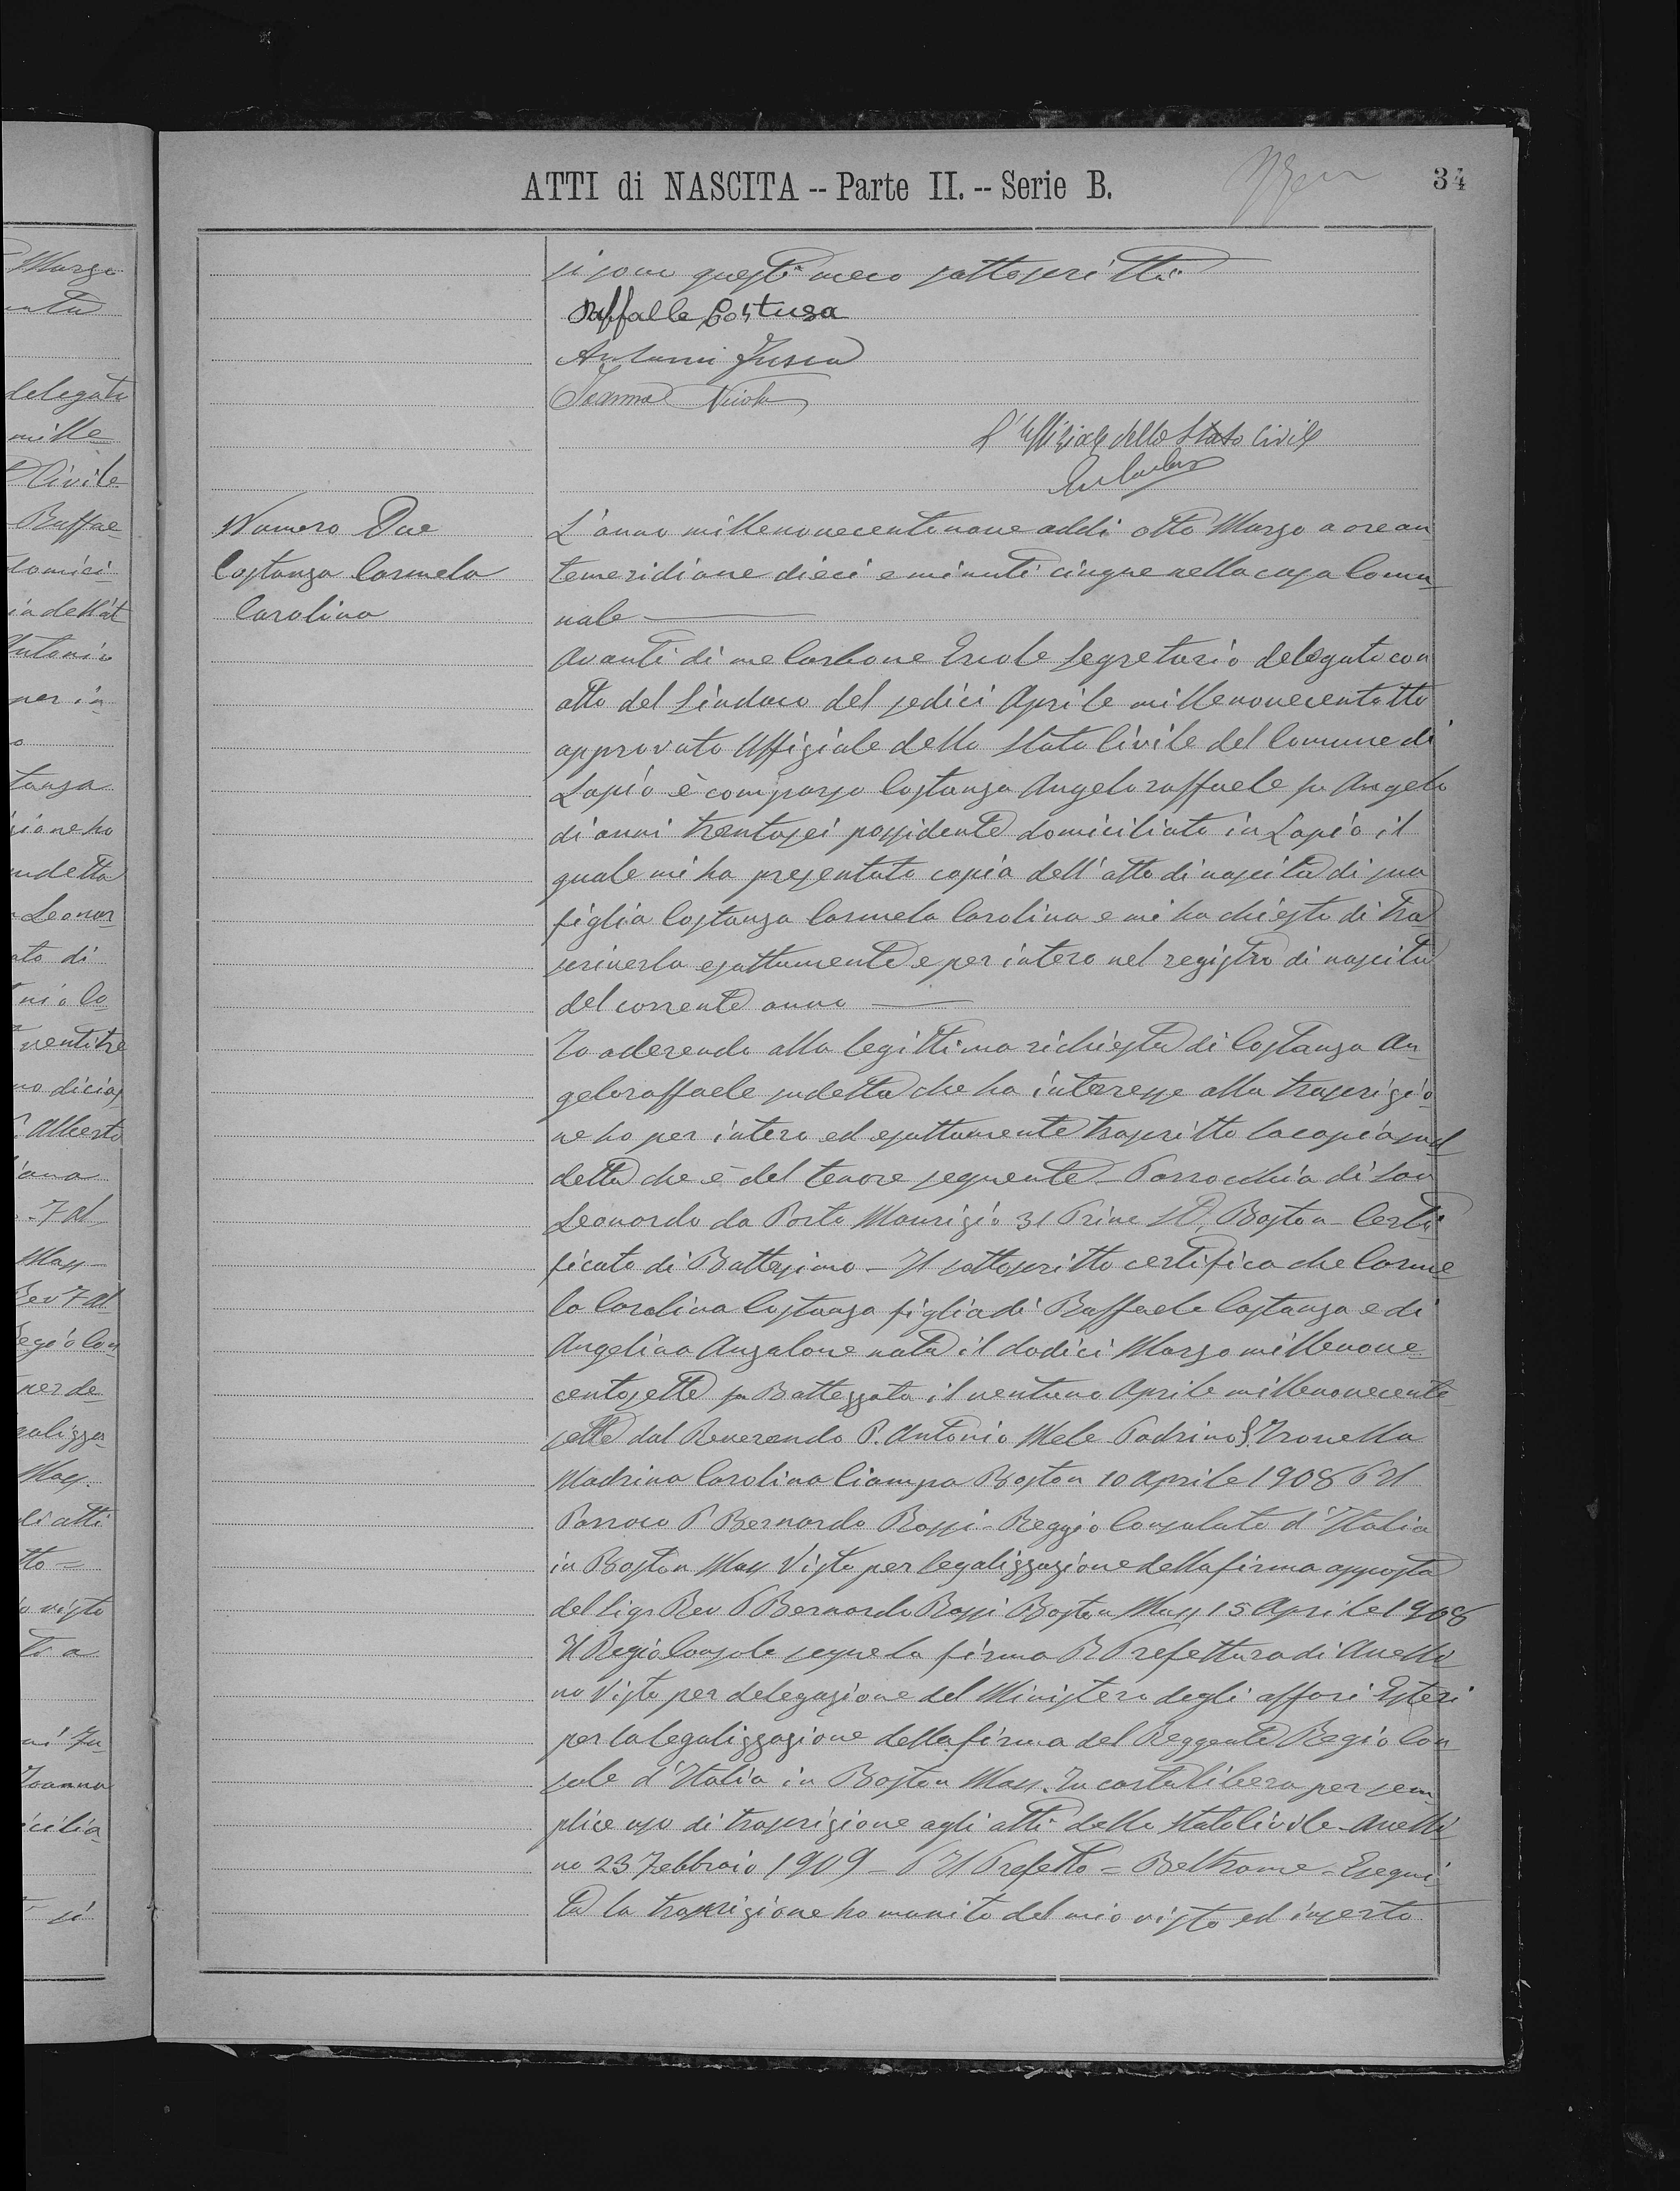 ATTI di NASCITA -- Parte II. -- Serie B.
34
si sono questi meco sottoscritti
Raffaele Costanza
Antonio
Ioanna Nicola
L'Uffiziale dello Stato Civile
Numero Due
Costanza Carmela
Carolina
L'anno millenovecentonove addi otto Marzo a ore an
temeridiane dieci e minuti cinque nella casa Comu
nale
Avanti di me Carbone Ercole Segretario delegato con
atto del Sindaco del sedici Aprile millenovecentotto
approvato Uffiziale dello Stato Civile del Comune di
Lapio è comparso Costanza Angeloraffaele fu Angelo
di anni trentasei possidente domiciliato in Lapio il
quale mi ha presentato copia dell'atto di nascita di sua
figlia Costanza Carmela Carolina e mi ha chiesto di tra
scriverla esattamente e per intero nel registro di nascita
del corrente anno
Io aderendo alla legittima richiesta di Costanza An
geloraffaele sudetto che ha interesse alla trascrizio
ne ho per intero ed esattamente trascritto la copia sud
detta che è del tenore seguente - Parrocchia di San
Leonardo da Porto Maurizio 31 Prine St, Boston - Certi
ficato di Battesimo - Il sottoscritto certifica che Carme
la Carolina Costanza figlia di Raffaele Costanza e di
Angelina Anzalone nata il dodici Marzo millenove
centosette fu Battezzata il ventuno Aprile millenovecento
sette dal Reverendo P. Antonio Mele Padrino S. Tronella
Madrina Carolina Ciampa Boston 10 Aprile 1908 P Il
Parroco P Bernardo Rossi - Reggio Consolato d'Italia
in Boston Mass Visto per legalizzazione della firma apposta
del Sigr Rev P Bernardo Rossi Boston Mass 15 Aprile 1908
Il Regio Console segue la firma R Prefettura di Avelli
no Visto per delegazione del Ministero degli affari Esteri
per la legalizzazione della firma del Reggente Regio Con
sole d'Italia in Boston Mass. In carta libera per sem
plice uso di trascrizione agli atti dello Stato Civile - Avelli
no 23 Febbraio 1909 - P Il Prefetto = Beltrame - Esegui
ta la trascrizione ho munito del mio visto ed inserto